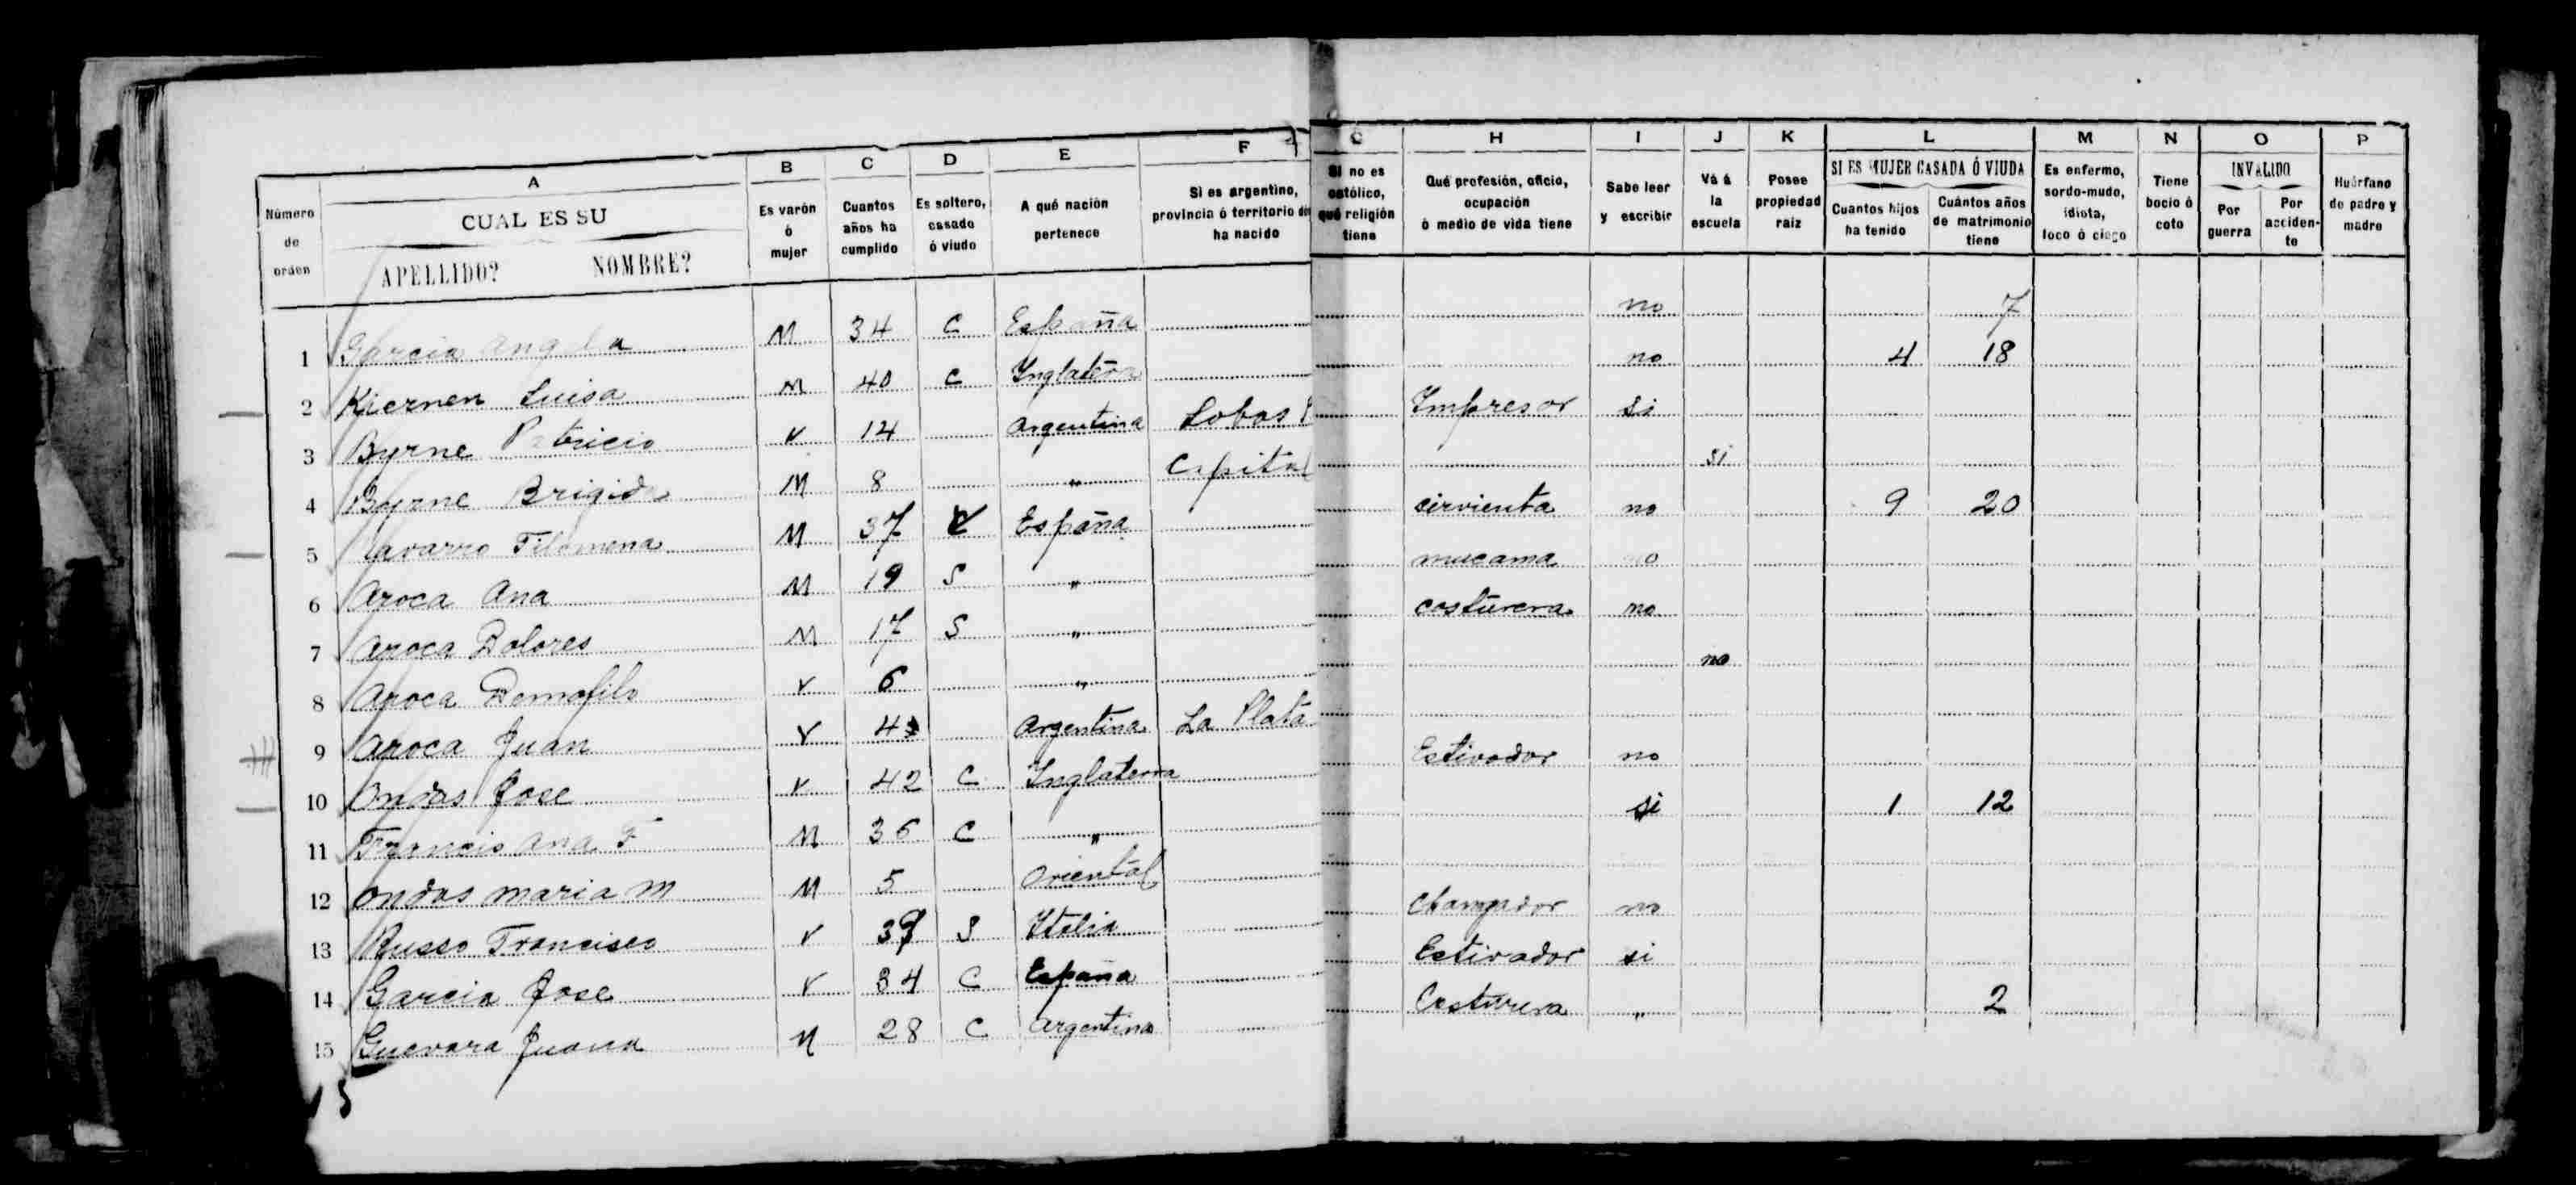 A B C D E F G H I J K L M N O P
Número de orden
CUAL ES SU
APELLIDO? NOMBRE?
Es varón ó mujer
Cuantos años ha cumplido
Es soltero, casado ó viudo
A qué nación pertenece
Si es argentino, provincia ó territorio ha nacido
Si no es católico, qué religión tiene
Qué profesión, oficio, ocupación ó medio de vida tiene
Sabe leer y escribir
Vá á la escuela
Posee propiedad raiz
SI ES MUJER CASADA Ó VIUDA
Cuantos hijos ha tenido
Cuántos años de matrimonio tiene
Es enfermo, sordo-mudo, idiota, loco ó ciego
Tiene bocio ó coto
INVALIDO
Por guerra
Por acciden-te
Huérfano de padre y madre
1 Garcia Angela M 34 C España no 7
2 Kiernen Luisa M 40 C Inglaterra no 4 18
3 Byrne Patricio V 14 Argentina Lobos Impresor si
4 Byrne Brigida M 8 " Capital si
5 Navarro Filomena M 37 V España sirvienta no 9 20
6 Aroca Ana M 19 S " mucama no
7 Aroca Dolores M 17 S " costurera no
8 Aroca V 6 " no
9 Aroca Juan V 4 Argentina La Plata
10 Ondas Jose V 42 C Inglaterra Estivador no
11 Francis Ana F M 36 C " si 1 12
12 Ondas Maria M M 5 Oriental
13 Russo Francisco V 39 S Italia Changador no
14 Garcia Jose V 34 C España Estivador si
15 Guevara Juana M 28 C Argentina Costurera " 2
15